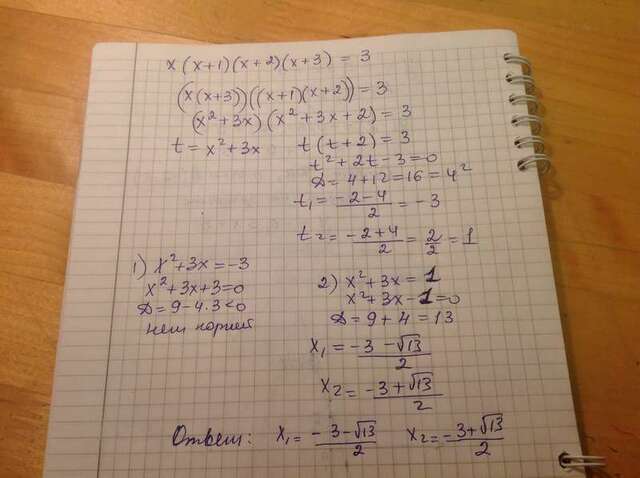 x(x+1)(x+2)(x+3) = 3
(x(x+3))((x+1)(x+2)) = 3
(x²+3x)(x²+3x+2) = 3
t = x²+3x t(t+2) = 3
t²+2t-3=0
D = 4+12=16=4²
t₁ = (-2-4)/2 = -3
t₂ = (-2+4)/2 = 2/2 = 1
1) x²+3x=-3
x²+3x+3=0
D = 9-4·3<0
нет корней
2) x²+3x=1
x²+3x-1=0
D = 9+4=13
x₁ = (-3-√13)/2
x₂ = (-3+√13)/2
Ответ: x₁ = (-3-√13)/2 x₂ = (-3+√13)/2